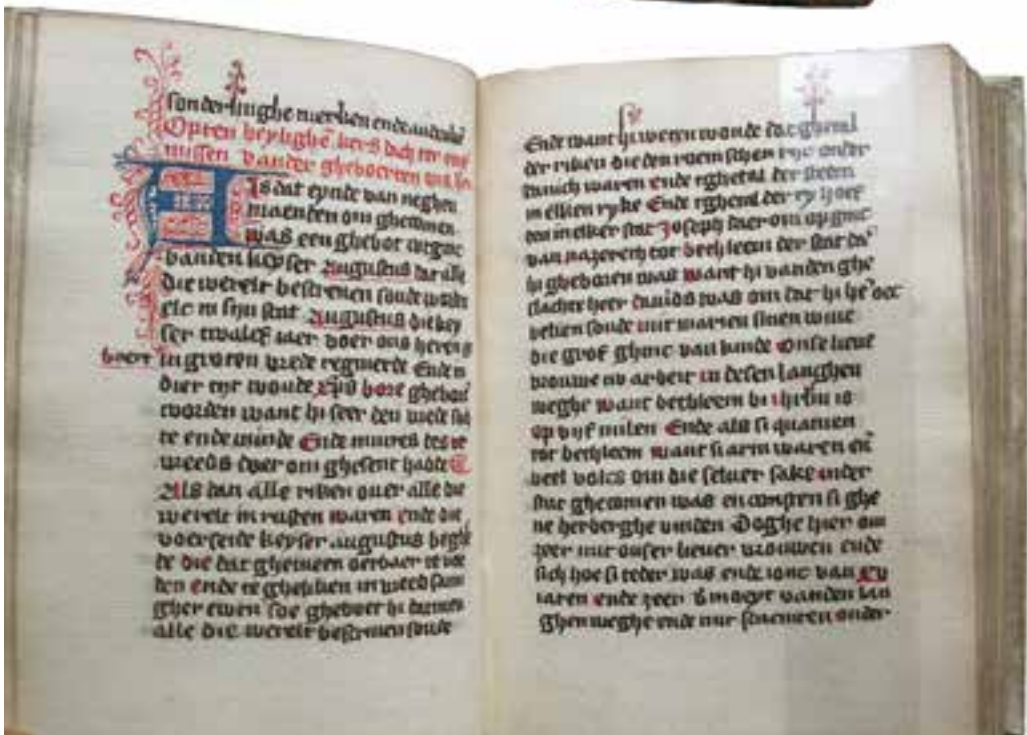 sonderlinghe merken ende
Op ten heylighe kers dach ter
missen vander gheboerten
Als dat eynde van neghen
maenden om ghecomen
was een ghebot
vanden keyser augustus dat alle
die werelt bescreven soude
elc in sijn stat augustus die key
ser twalef iaer voer ons heren
boert in groten vrede regneerde Ende
dier tijt woude xps
worden want hi seer den vrede
te ende minde Ende
daer om ghesent hadde
Als dan alle riken over alle die
werelt in rusten waren ende die
voerseide keyser augustus
de die dat ghemeen oerbaer te
den ende te ghebben in
gher ewen soe gheboet hi
alle die werelt bescreven soude
Ende want si weren woude dat ghetal
der riken die den roemschen ryc onder
danich waren ende tghetal der steden
in elken ryke Ende tghetal der
den in elker stat Joseph daer om op ginc
van nazereth tot bethleem der stat
hi gheboren was want hi vanden ghe
slachte heer dauids was om dat hi
belien soude mit marien sinen wiue
die grof ghinc van kinde Onse lieue
vrouwe nv arbeit in desen langhen
weghe want bethleem bi is
op vijf milen Ende als si quamen
tot bethleem want si arm waren en
veel volcs om die seluer sake inder
stat ghecomen was en consten si ghe
ne herberghe vinden Doghe hier om
zeer mit onser lieuer vrouwen ende
sich hoe si teder was ende ionc van xv
iaren ende zeer vanden lan
ghen weghe ende mit onder